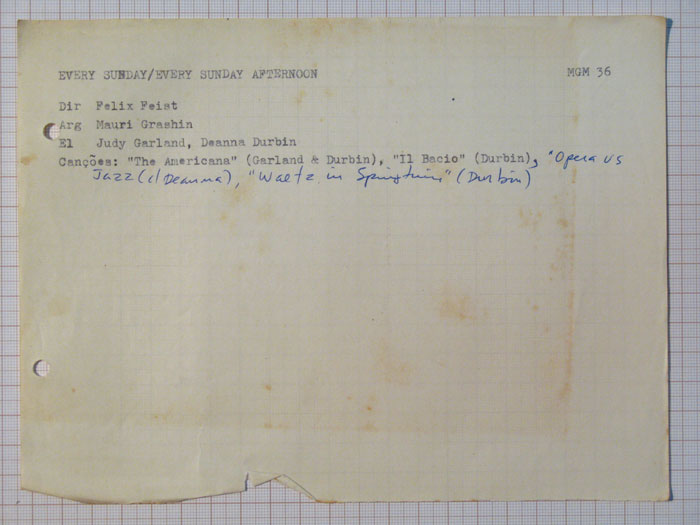 EVERY SUNDAY/EVERY SUNDAY AFTERNOON MGM 36
Dir Felix Feist
Arg Mauri Grashin
El Judy Garland, Deanna Durbin
Canções: "The Americana" (Garland & Durbin), "Il Bacio" (Durbin), "Opera vs
Jazz (c/ Deanna), "Waltz in Springtime" (Durbin)